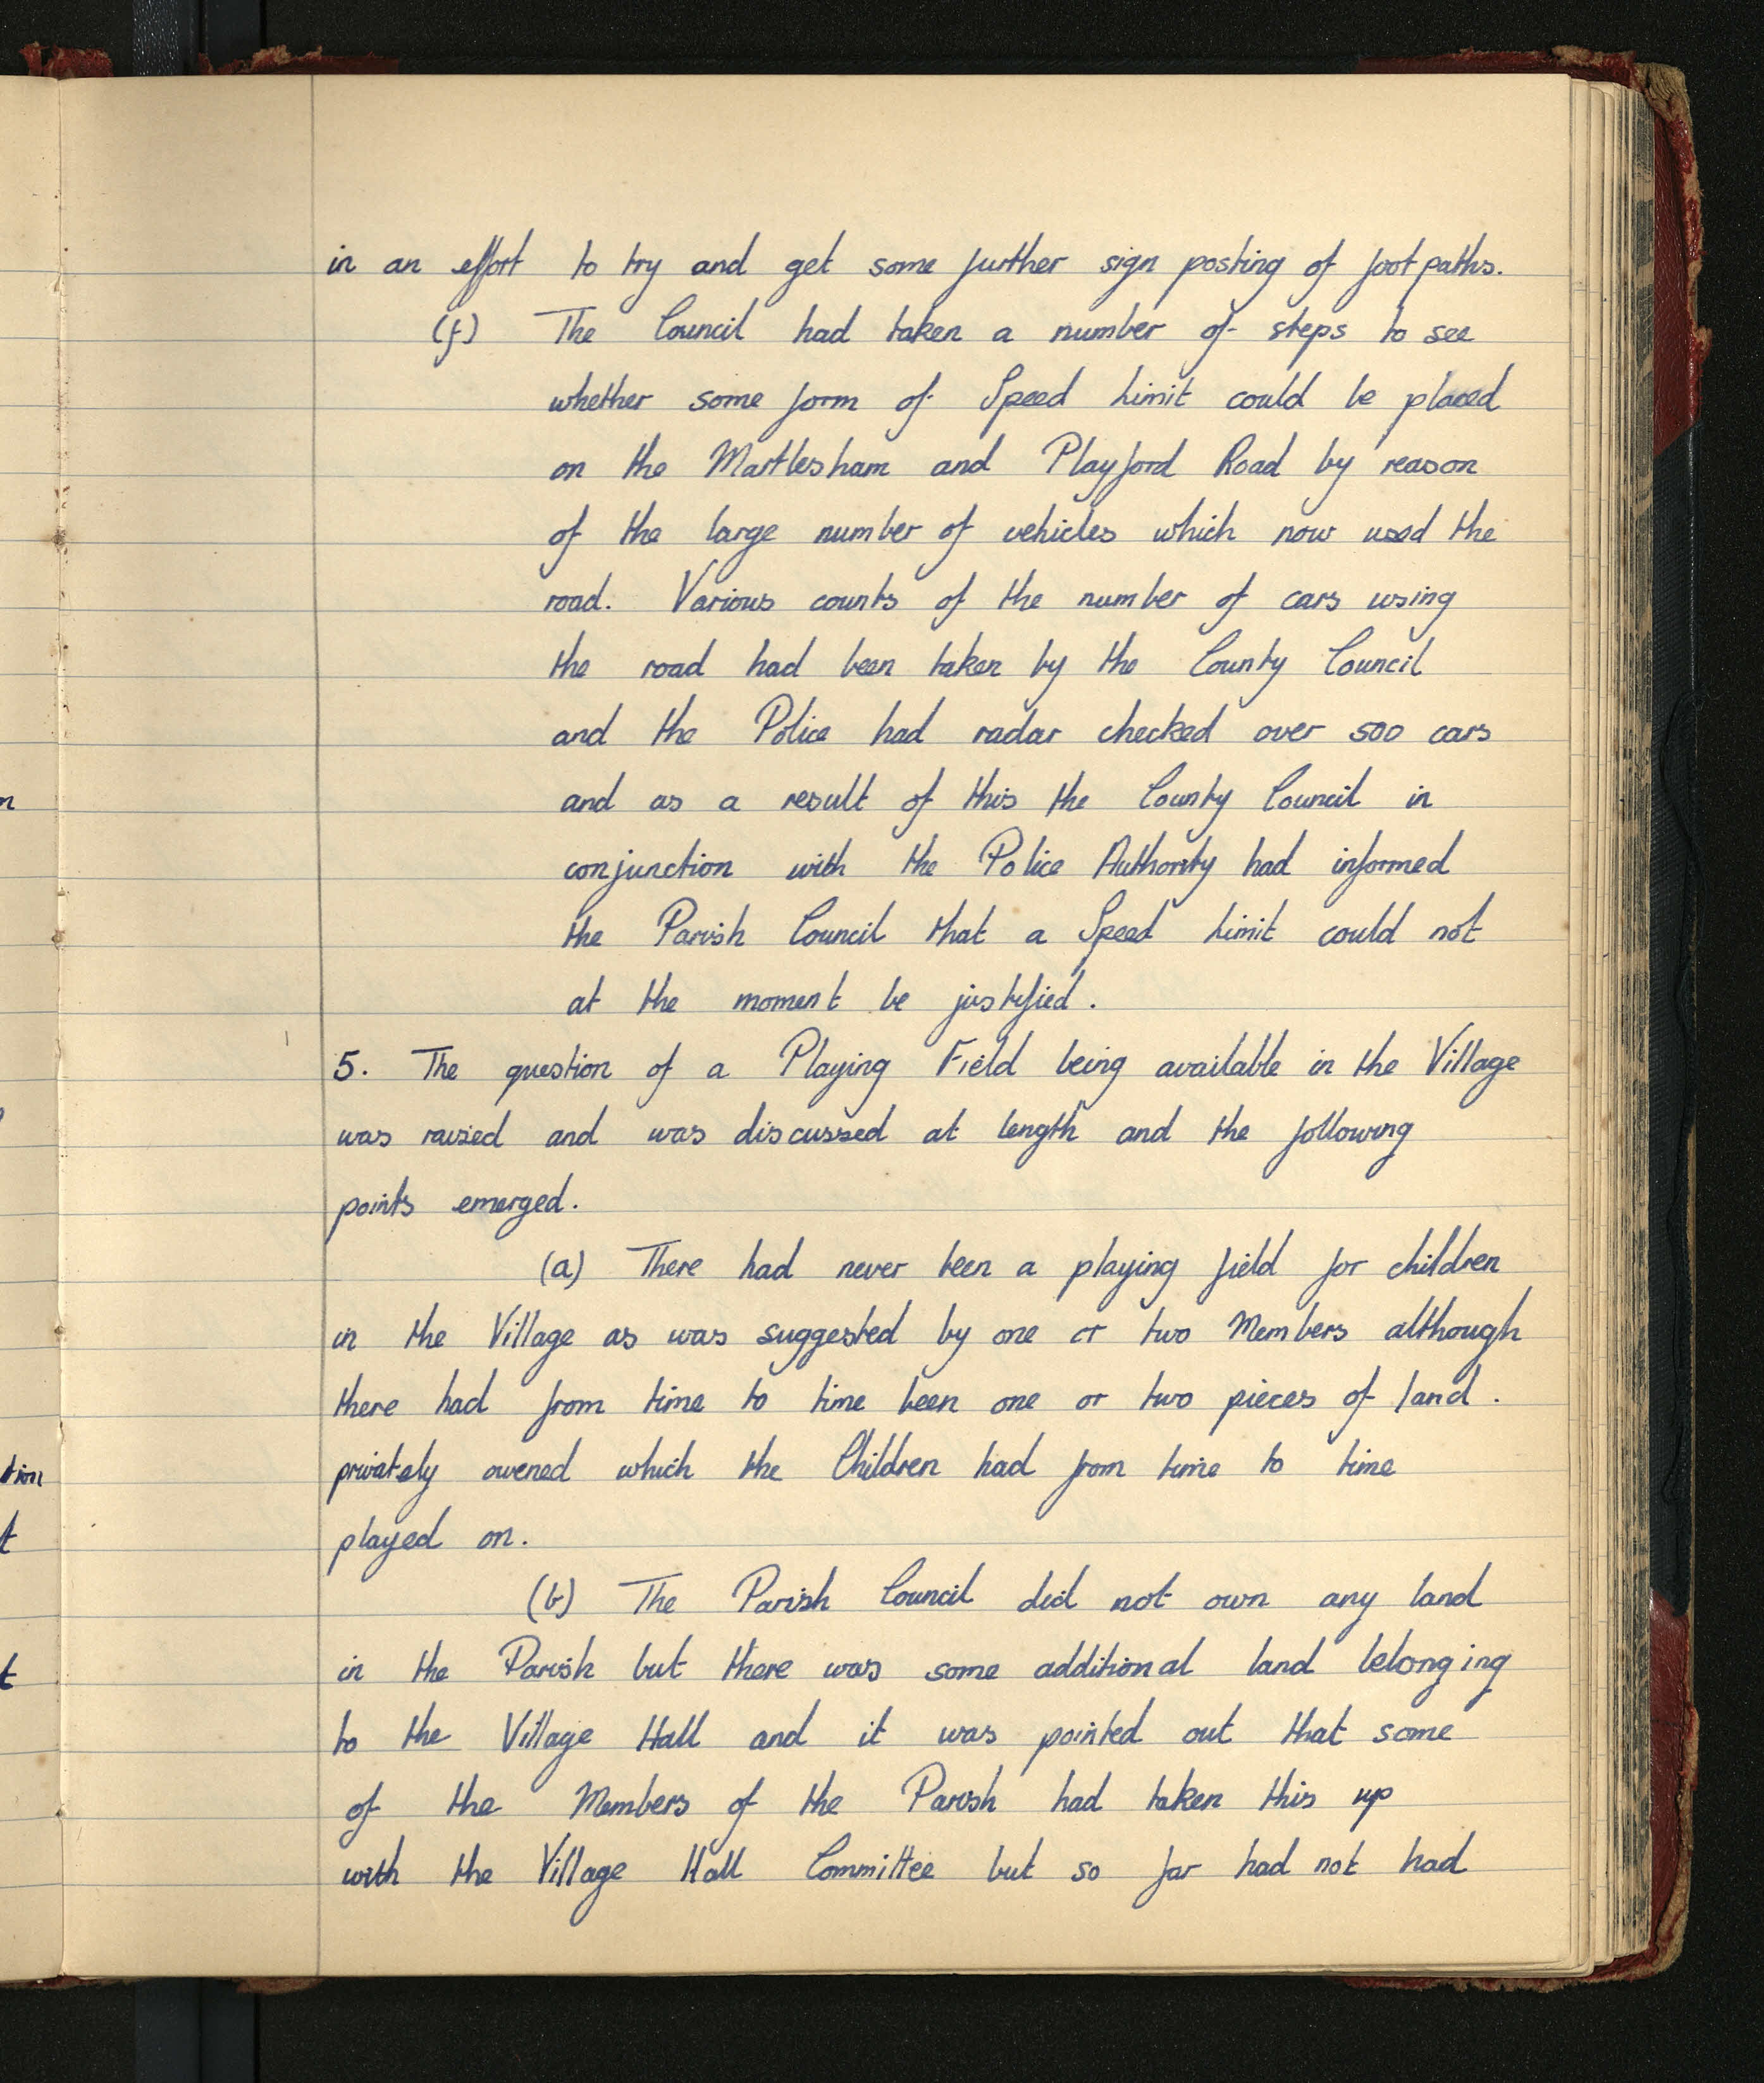 in an effort to try and get some further sign posting of footpaths.
(f) The Council had taken a number of steps to see
whether some form of Speed Limit could be placed
on the Martlesham and Playford Road by reason
of the large number of vehicles which now used the
road. Various counts of the number of cars using
the road had been taken by the County Council
and the Police had radar checked over 500 cars
and as a result of this the County Council in
conjunction with the Police Authority had informed
the Parish Council that a Speed Limit could not
at the moment be justified.
5. The question of a Playing Field being available in the Village
was raised and was discussed at length and the following
points emerged.
(a) There had never been a playing field for children
in the Village as was suggested by one or two Members although
there had from time to time been one or two pieces of land.
privately owened which the Children had from time to time
played on.
(b) The Parish Council did not own any land
in the Parish but there was some additional land belonging
to the Village Hall and it was pointed out that some
of the Members of the Parish had taken this up
with the Village Hall Committee but so far had not had